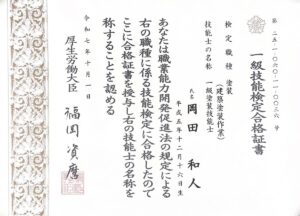 一級技能検定合格証書
検定職種 塗装
(建築塗装作業)
技能士の名称 一級塗装技能士
氏名 岡田 和人
平成五年十二月十六日生
あなたは職業能力開発促進法の規定による
右の職種に係る技能検定に合格したので
ここに合格証書を授与し右の技能士の名称を
称することを認める
令和七年十月一日
厚生労働大臣 福岡資麿